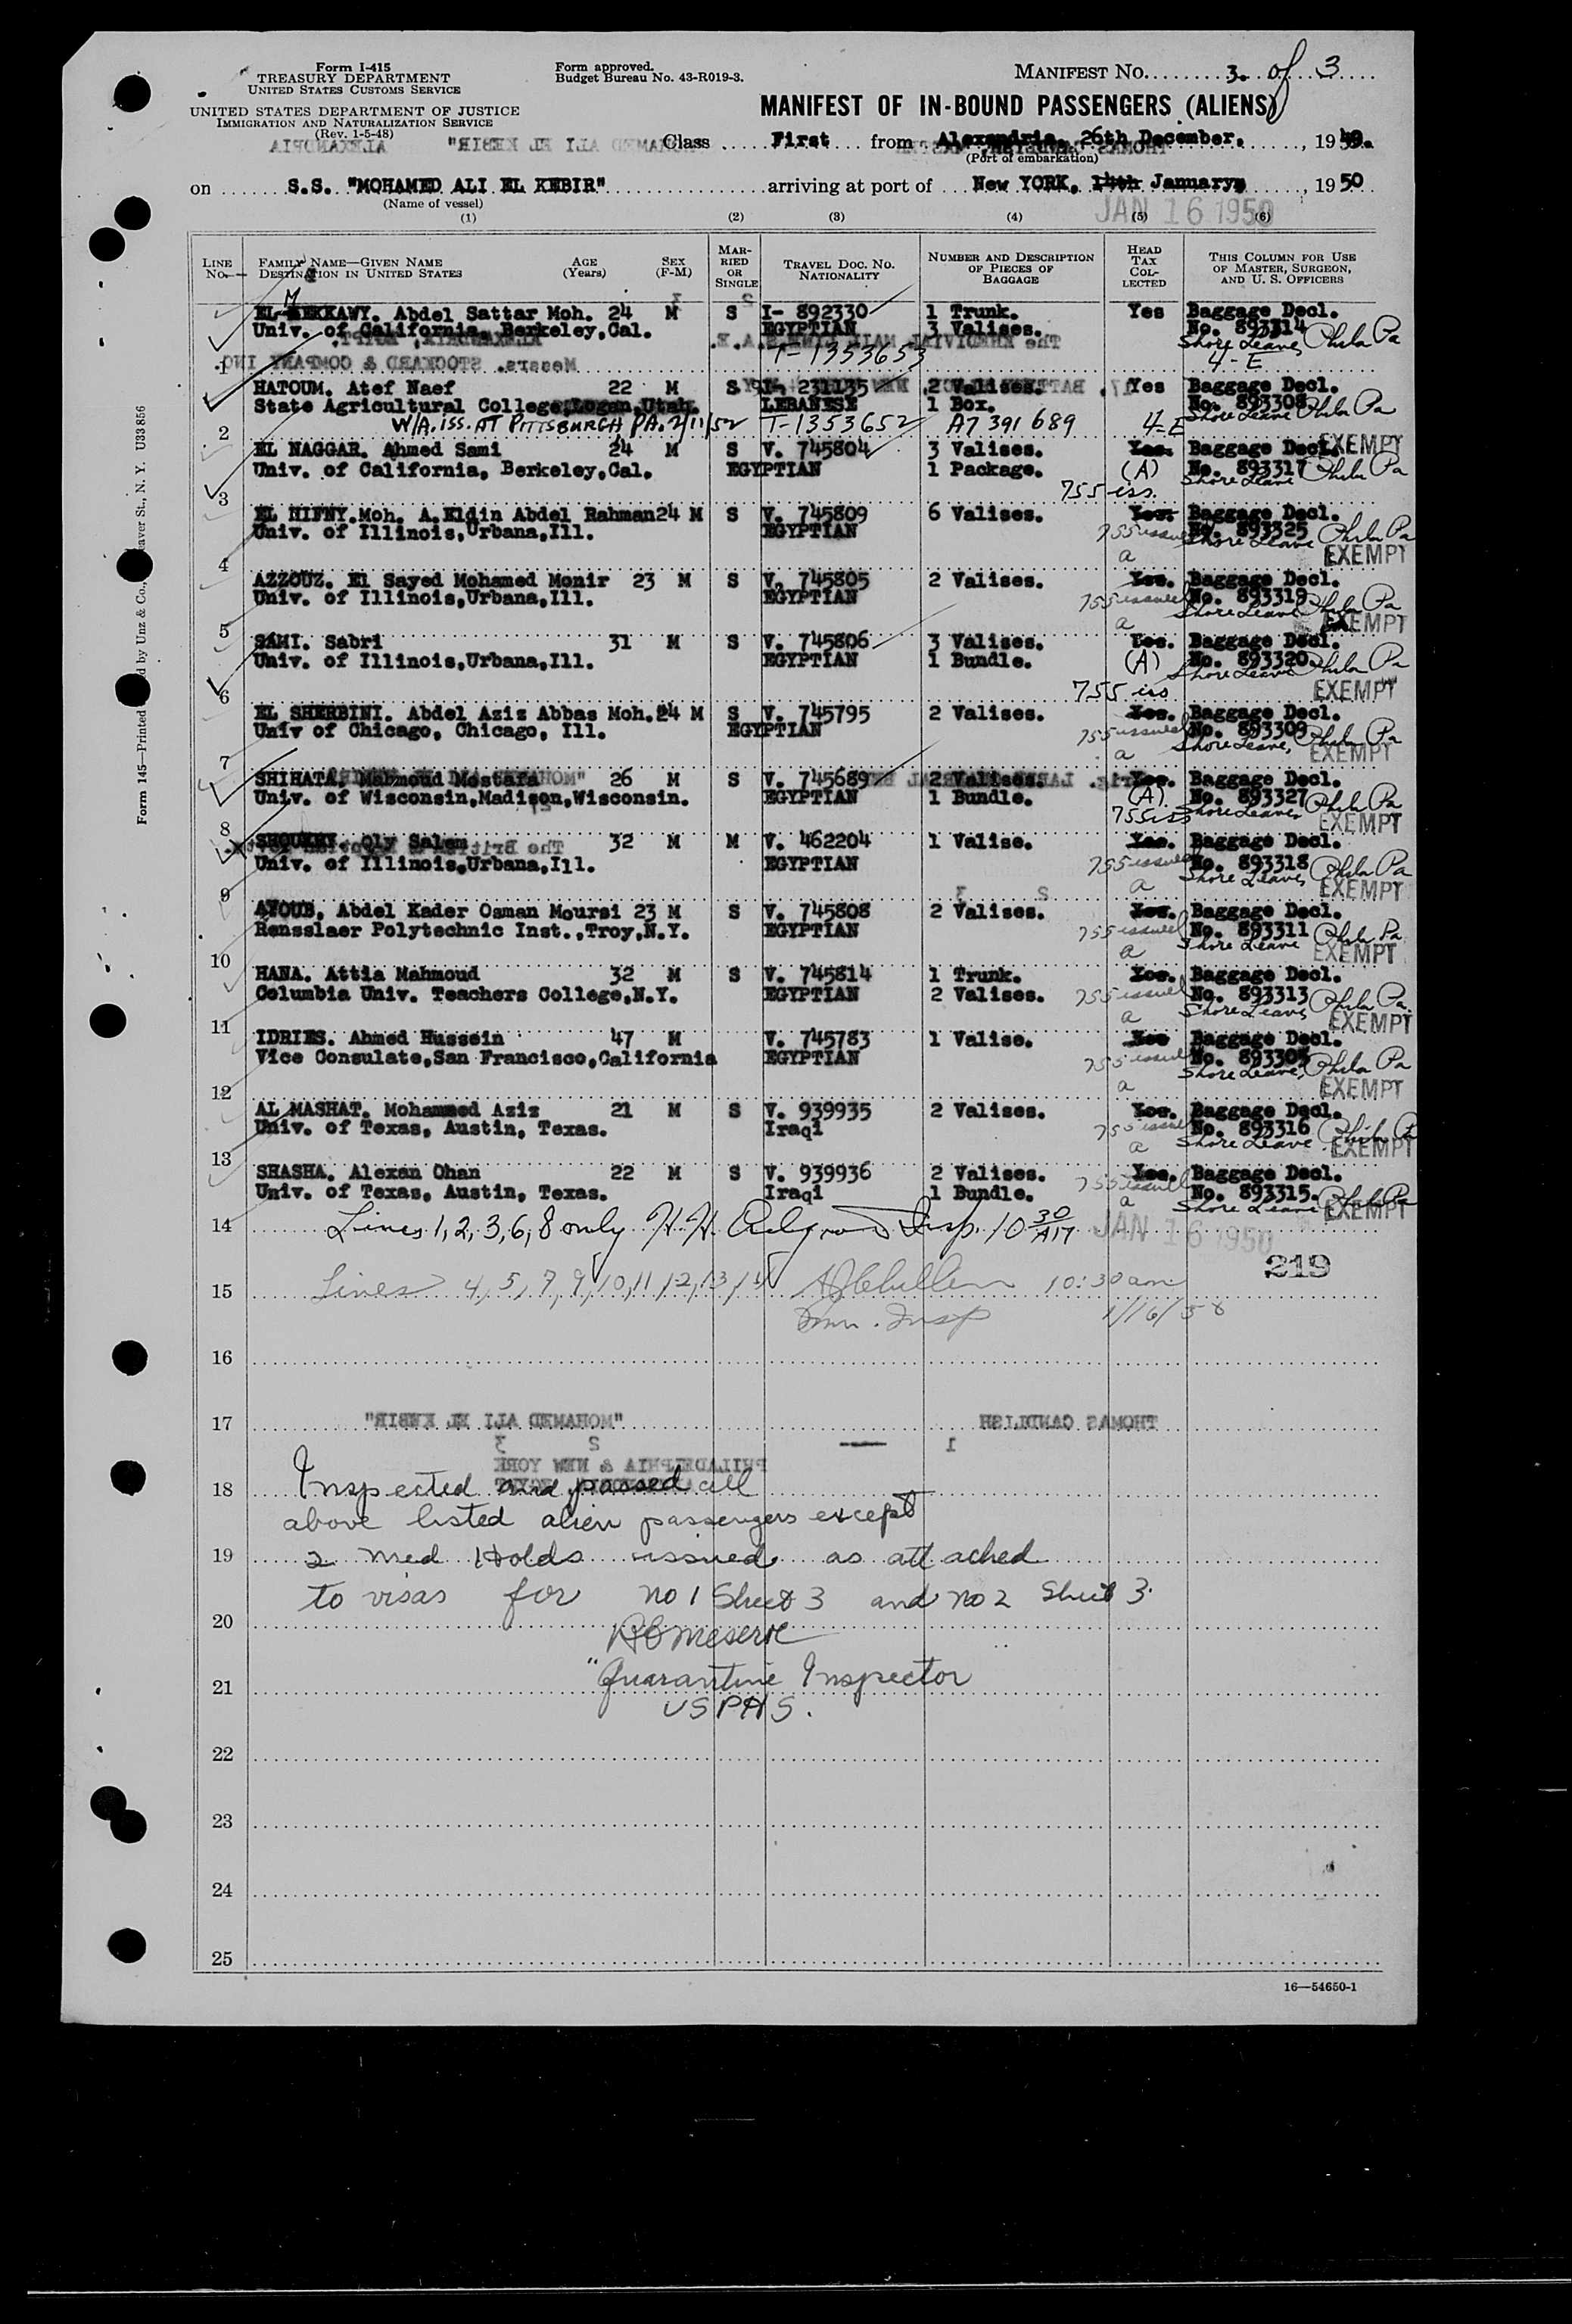 Form I-415
TREASURY DEPARTMENT
UNITED STATES CUSTOMS SERVICE
UNITED STATES DEPARTMENT OF JUSTICE
IMMIGRATION AND NATURALIZATION SERVICE
(Rev. 1-5-48)
Form approved.
Budget Bureau No. 43-R019-3.
MANIFEST No. 3. of 3
MANIFEST OF IN-BOUND PASSENGERS (ALIENS)
Class First from Alexandria, 26th December, 1949.
(Port of embarkation)
on S.S. "MOHAMED ALI EL KEBIR" arriving at port of New YORK, 14th January, 1950
(Name of vessel)
JAN 16 1950
(1) (2) (3) (4) (5) (6)
LINE No. FAMILY NAME—GIVEN NAME DESTINATION IN UNITED STATES AGE (Years) SEX (F-M) MARRIED OR SINGLE TRAVEL DOC. NO. NATIONALITY NUMBER AND DESCRIPTION OF PIECES OF BAGGAGE HEAD TAX COLLECTED THIS COLUMN FOR USE OF MASTER, SURGEON, AND U. S. OFFICERS
EL MEKKAWY. Abdel Sattar Moh. 24 M S I- 892330 1 Trunk. Yes Baggage Decl.
Univ. of California, Berkeley, Cal. EGYPTIAN 3 Valises. No. 893314
T-1353653 Shore Leave, Phila Pa
1 4-E
HATOUM. Atef Naef 22 M S I- 231135 2 Valises. Yes Baggage Decl.
State Agricultural College, Logan, Utah. LEBANESE 1 Box. No. 893308
2 W/A. ISS. AT PITTSBURGH PA. 2/11/52 T-1353652 A7 391 689 4-E Shore Leave Phila Pa
EL NAGGAR. Ahmed Sami 24 M S V. 745804 3 Valises. Yes. Baggage Decl. EXEMPT
Univ. of California, Berkeley, Cal. EGYPTIAN 1 Package. (A) No. 893317
3 755 iss. Shore Leave Phila Pa
EL HIFNY. Moh. A. Eldin Abdel Rahman 24 M S V. 745809 6 Valises. Yes. Baggage Decl.
Univ. of Illinois, Urbana, Ill. EGYPTIAN 755 issued No. 893325
4 a Shore Leave Phila Pa EXEMPT
AZZOUZ. El Sayed Mohamed Monir 23 M S V. 745805 2 Valises. Yes. Baggage Decl.
Univ. of Illinois, Urbana, Ill. EGYPTIAN 755 issued No. 893319
5 a Shore Leave Phila Pa EXEMPT
SAMI. Sabri 31 M S V. 745806 3 Valises. Yes. Baggage Decl.
Univ. of Illinois, Urbana, Ill. EGYPTIAN 1 Bundle. (A) No. 893320
6 755 iss Shore Leave Phila Pa EXEMPT
EL SHERBINI. Abdel Aziz Abbas Moh. 24 M S V. 745795 2 Valises. Yes. Baggage Decl.
Univ of Chicago, Chicago, Ill. EGYPTIAN 755 issued No. 893309
7 a Shore Leave, Phila Pa EXEMPT
SHIHATA, Mahmoud Mostafa 26 M S V. 745689 2 Valises. Yes. Baggage Decl.
Univ. of Wisconsin, Madison, Wisconsin. EGYPTIAN 1 Bundle. (A) No. 893327
8 755 iss Shore Leave, Phila Pa EXEMPT
SHOUKRY. Oly Salem 32 M M V. 462204 1 Valise. Yes. Baggage Decl.
Univ. of Illinois, Urbana, Ill. EGYPTIAN 755 issued No. 893318
9 a Shore Leave, Phila Pa EXEMPT
AYOUB, Abdel Kader Osman Moursi 23 M S V. 745808 2 Valises. Yes. Baggage Decl.
Rensslaer Polytechnic Inst., Troy, N.Y. EGYPTIAN 755 issued No. 893311
10 a Shore Leave Phila Pa EXEMPT
HANA. Attia Mahmoud 32 M S V. 745814 1 Trunk. Yes. Baggage Decl.
Columbia Univ. Teachers College, N.Y. EGYPTIAN 2 Valises. 755 issued No. 893313
11 a Shore Leave, Phila Pa. EXEMPT
IDRIES. Ahmed Hussein 47 M V. 745783 1 Valise. Yes Baggage Decl.
Vice Consulate, San Francisco, California EGYPTIAN 755 issued No. 893305
12 a Shore Leave, Phila Pa EXEMPT
AL MASHAT. Mohammed Aziz 21 M S V. 939935 2 Valises. Yes. Baggage Decl.
Univ. of Texas, Austin, Texas. Iraqi 755 issued No. 893316
13 a Shore Leave Phila P EXEMPT
SHASHA. Alexan Ohan 22 M S V. 939936 2 Valises. Yes. Baggage Decl.
Univ. of Texas, Austin, Texas. Iraqi 1 Bundle. 755 issued No. 893315.
a Shore Leave Phila Pa EXEMPT
14 Lines 1, 2, 3, 6, 8 only H. H. Insp. 10 30 AM JAN 16 1950
219
15 Lines 4, 5, 7, 9, 10, 11, 12, 13, 14 10:30 am
Imm. Insp 1/16/50
16
17 "MOHAMED ALI EL KEBIR" THOMAS CANDLISH
2 3 1
PHILADELPHIA & NEW YORK
18 Inspected and passed all
above listed alien passengers except
19 2 med Holds issued as attached
to visas for no 1 Sheet 3 and no 2 Sheet 3.
20
Quarantine Inspector
21 USPHS.
22
23
24
25
16—54650-1
Form 145—Printed by Unz & Co., Beaver St., N. Y. U33856